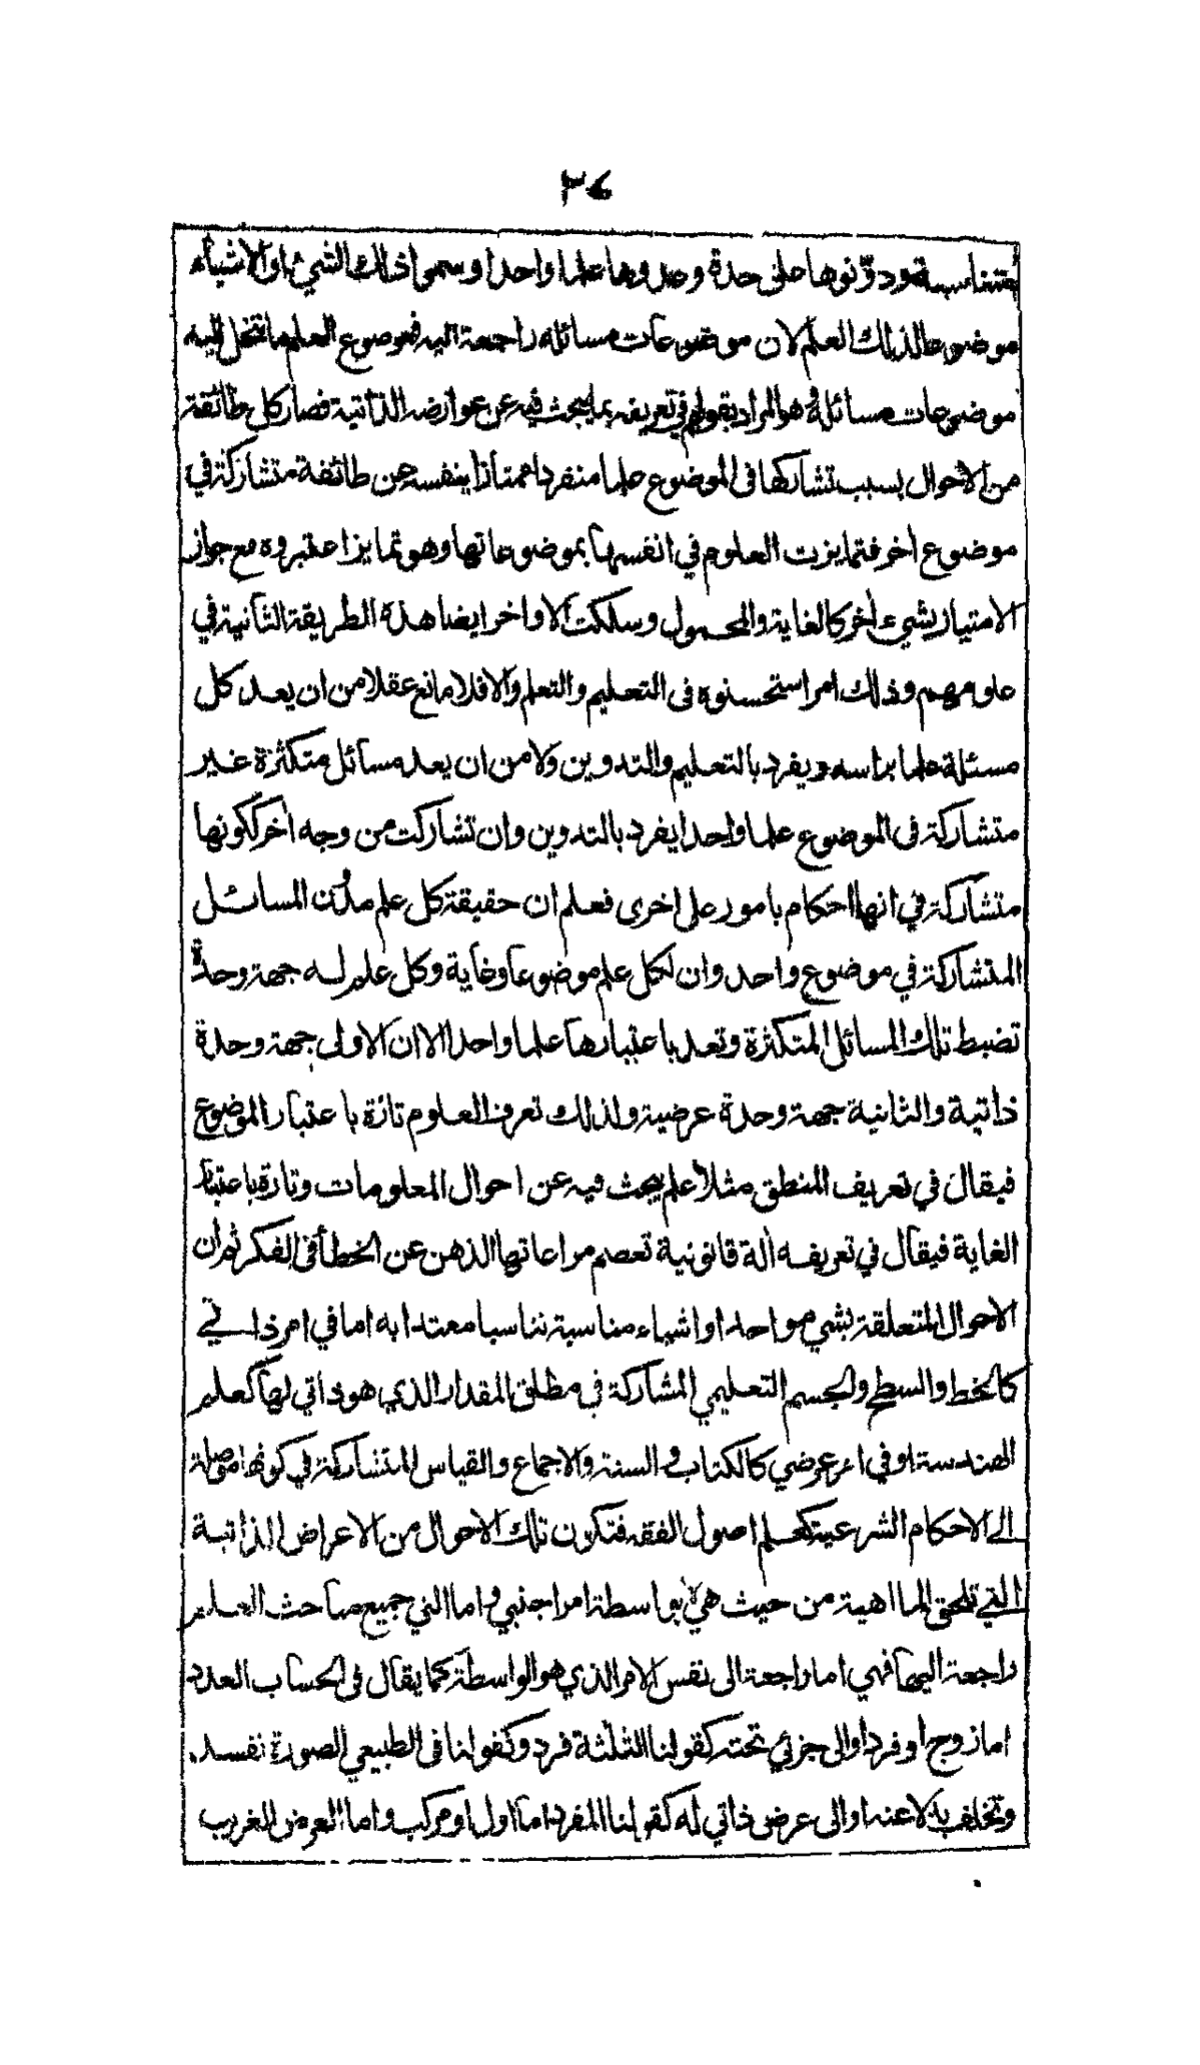 ٣٤
متناسبة ودوّنوها على حدة وعدوها علما واحدا وسموا ذلك الشيء او الاشياء
موضوعا لذلك العلم لان موضوعات مسائله راجعة اليه فموضوع العلم ما تنحل اليه
موضوعات مسائله وهو المراد بقولهم في تعريفه بما يبحث فيه عن عوارضه الذاتية فصار كل طائفة
من الاحوال بسبب تشاركها في الموضوع علما منفردا ممتازا بنفسه عن طائفة متشاركة في
موضوع اخر فتمايزت العلوم في انفسها بموضوعاتها وهو تمايز اعتبروه مع جواز
الامتياز بشيء أخر كالغاية والمحمول وسلكت الاواخر ايضا هذه الطريقة الثانية في
علومهم وذلك امر استحسنوه في التعليم والتعلم والا فلا مانع عقلا من ان يعد كل
مسئلة علما براسه ويفرد بالتعليم والتدوين ولا من ان يعد مسائل متكثرة غير
متشاركة في الموضوع علما واحدا يفرد بالتدوين وان تشاركت من وجه أخر ككونها
متشاركة في انها احكام بامور على اخرى فعلم ان حقيقة كل علم مدون المسائل
المتشاركة في موضوع واحد وان لكل علم موضوعا وغاية وكل علم له جهة وحدة
تضبط تلك المسائل المتكثرة وتعد باعتبارها علما واحدا الا ان الاولى جهة وحدة
ذاتية والثانية جهة وحدة عرضية ولذلك تعرف العلوم تارة باعتبار الموضوع
فيقال في تعريف المنطق مثلا علم يبحث فيه عن احوال المعلومات وتارة باعتبار
الغاية فيقال في تعريفه ألة قانونية تعصم مراعاتها الذهن عن الخطأ في الفكر ثم ان
الاحوال المتعلقة بشيء واحد او اشياء مناسبة تناسبا معتدا به اما في امر ذاتي
كالخط والسطح والجسم التعليمي المشاركة في مطلق المقدار الذي هو ذاتي لها كعلم
الهندسة او في امر عرضي كالكتاب والسنة والاجماع والقياس المتشاركة في كونها موصلة
الى الاحكام الشرعية كعلم اصول الفقه فتكون تلك الاحوال من الاعراض الذاتية
التي تلحق الماهية من حيث هي لا بواسطة امر اجنبي واما التي جميع مباحث العلم
راجعة اليها فهي اما راجعة الى نفس الامر الذي هو الواسطة كما يقال في الحساب العدد
اما زوج او فرد او الى جزئي تحته كقولنا الثلثة فرد وكقولنا في الطبيعي الصورة تفسد
وتخلف بدلا عنه او الى عرض ذاتي له كقولنا المفرد اما اول او مركب واما العرض الغريب